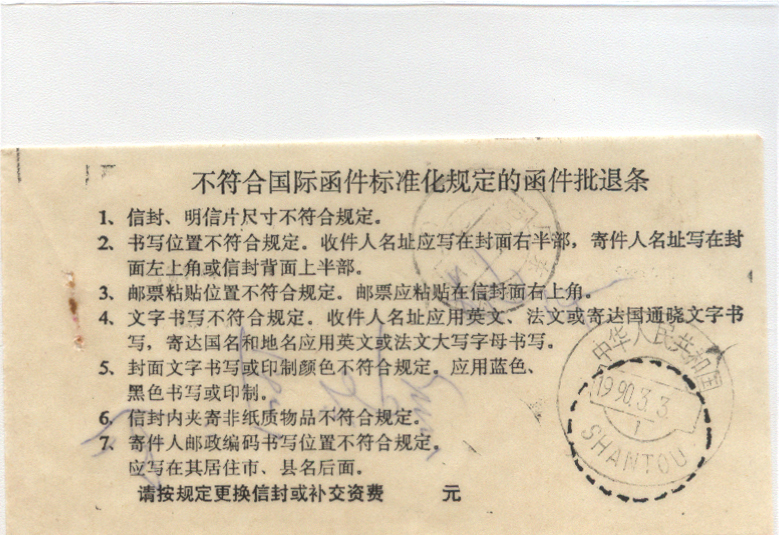 不符合国际函件标准化规定的函件批退条
1、信封、明信片尺寸不符合规定。
2、书写位置不符合规定。收件人名址应写在封面右半部，寄件人名址写在封
面左上角或信封背面上半部。
3、邮票粘贴位置不符合规定。邮票应粘贴在信封面右上角。
4、文字书写不符合规定。收件人名址应用英文、法文或寄达国通晓文字书
写，寄达国名和地名应用英文或法文大写字母书写。
5、封面文字书写或印制颜色不符合规定。应用蓝色、
黑色书写或印制。
6、信封内夹寄非纸质物品不符合规定。
7、寄件人邮政编码书写位置不符合规定。
应写在其居住市、县名后面。
请按规定更换信封或补交资费 元
中华人民共和国
1990.3.3.
1
SHANTOU